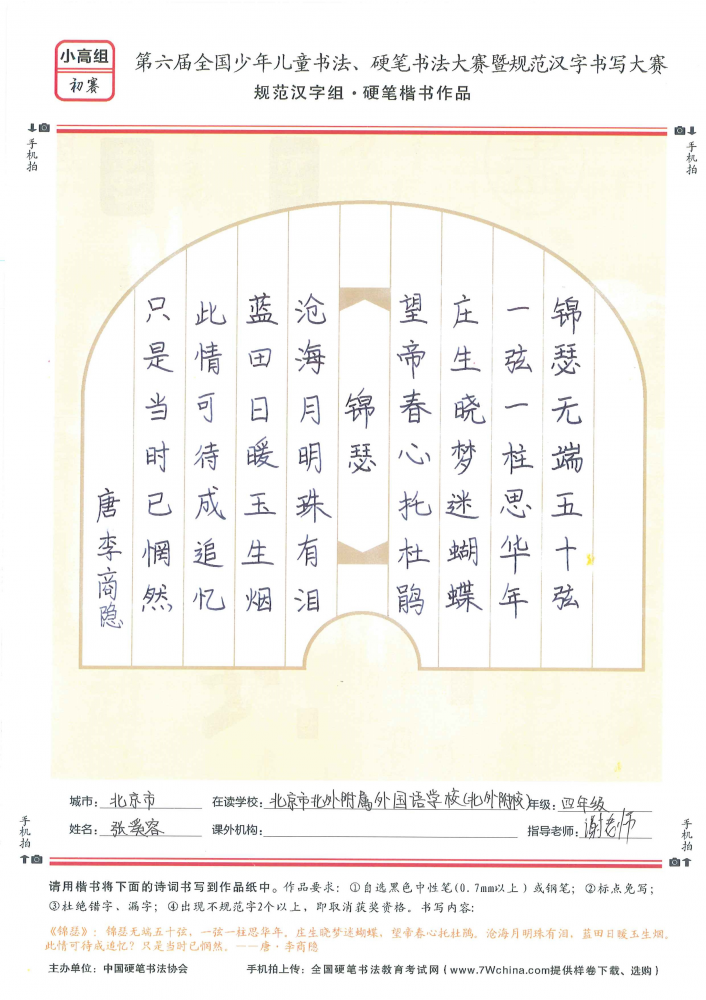 小高组
初赛
第六届全国少年儿童书法、硬笔书法大赛暨规范汉字书写大赛
规范汉字组·硬笔楷书作品
手机拍
手机拍
锦瑟无端五十弦
一弦一柱思华年
庄生晓梦迷蝴蝶
望帝春心托杜鹃
锦瑟
沧海月明珠有泪
蓝田日暖玉生烟
此情可待成追忆
只是当时已惘然
唐李商隐
城市：北京市 在读学校：北京市北外附属外国语学校(北外附校) 年级：四年级
姓名：张奚容 课外机构： 指导老师：谢老师
手机拍
手机拍
请用楷书将下面的诗词书写到作品纸中。作品要求：①自选黑色中性笔(0.7mm以上)或钢笔；②标点免写；
③杜绝错字、漏字；④出现不规范字2个以上，即取消获奖资格。书写内容：
《锦瑟》：锦瑟无端五十弦，一弦一柱思华年。庄生晓梦迷蝴蝶，望帝春心托杜鹃。沧海月明珠有泪，蓝田日暖玉生烟。
此情可待成追忆？只是当时已惘然。——唐·李商隐
主办单位：中国硬笔书法协会 手机拍上传：全国硬笔书法教育考试网（www.7Wchina.com提供样卷下载、选购）